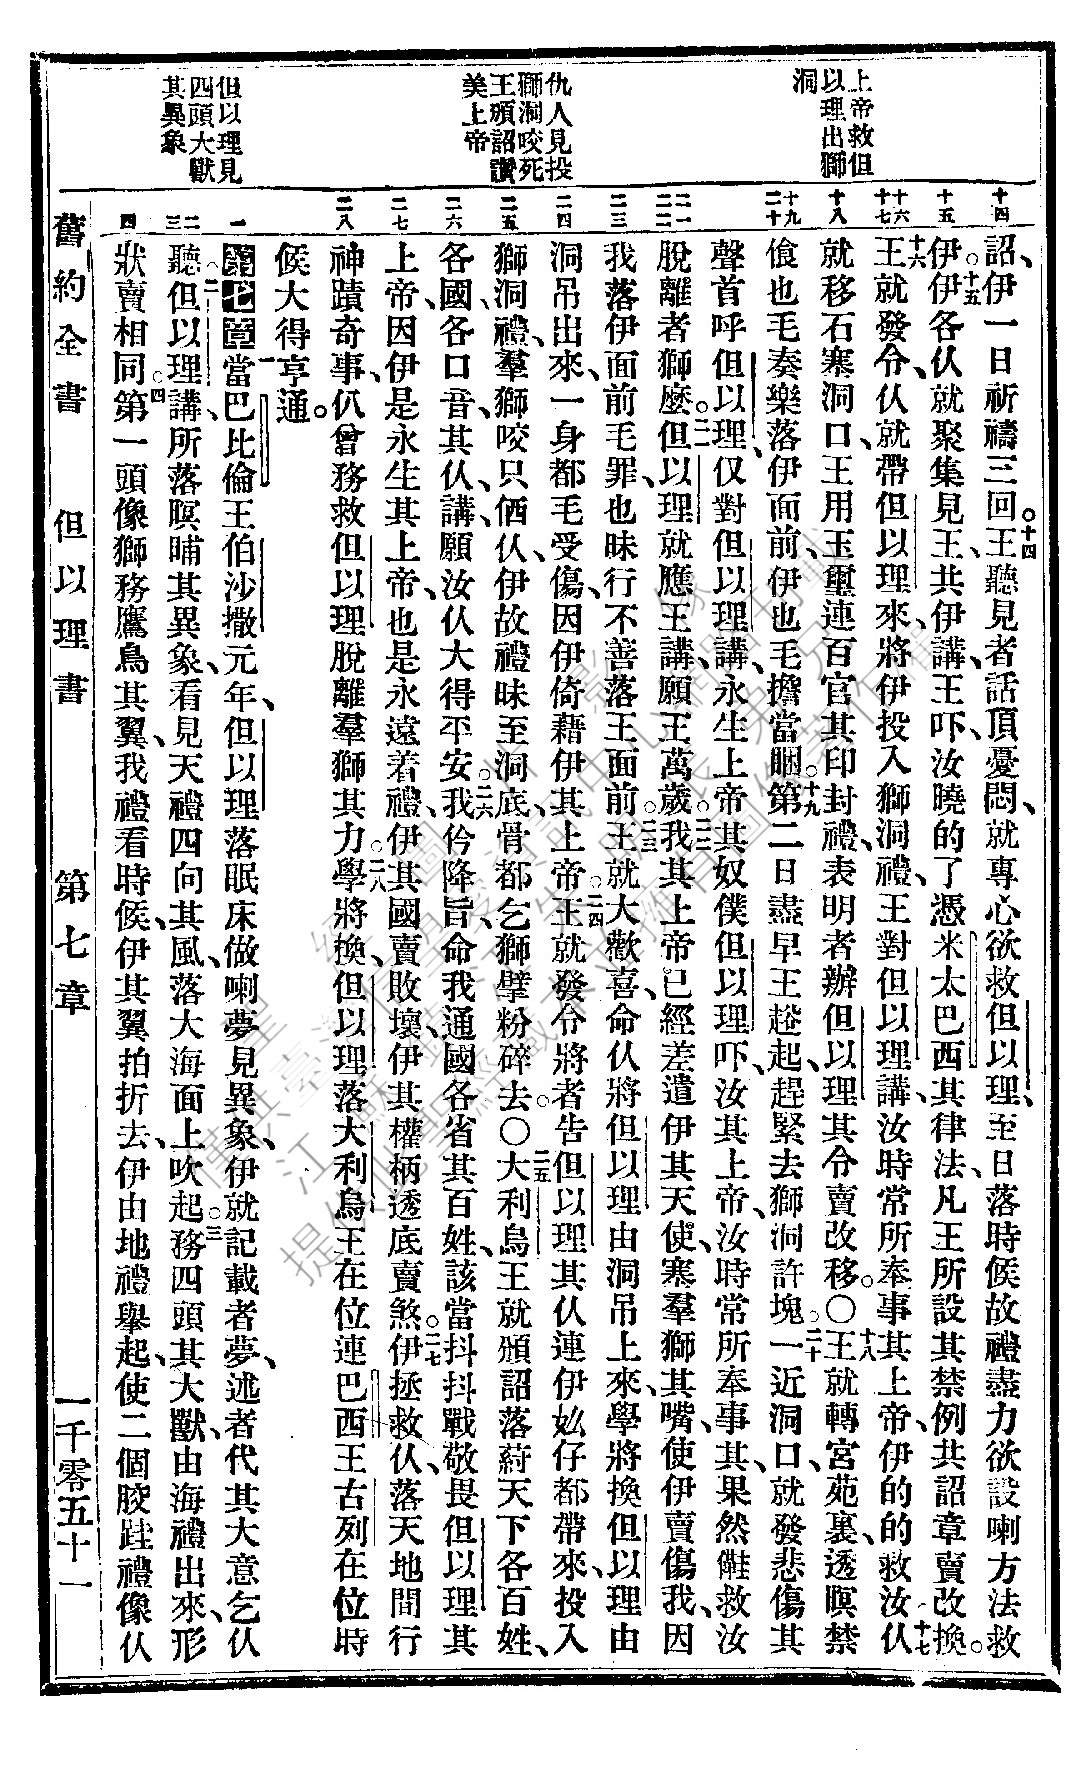 上帝救但
以理出獅
洞
仇人見投
獅洞咬死
王頒詔讚
美上帝
但以理見
四頭大獸
其異象
十四
十五
十六
十七
十八
十九
二十
二一
二二
二三
二四
二五
二六
二七
二八
一
二
三
四
詔、伊一日祈禱三回。十四王聽見者話、頂憂悶、就專心欲救但以理、至日落時候、故禮盡力欲設喇方法救
伊。十五伊各仈就聚集見王、共伊講、王吓、汝曉的了憑米太巴西其律法、凡王所設其禁例共詔章賣改換。
十六王就發令、仈就帶但以理來、將伊投入獅洞禮、王對但以理講、汝時常所奉事其上帝、伊的的救汝。十七仈
就移石塞洞口、王用玉璽連百官其印封禮、表明者辦但以理其令賣改移。〇十八王就轉宮苑裏、透暝禁
食也毛奏樂落伊面前、伊也毛擔當睏。十九第二日盡早王趂起、趕緊去獅洞許塊。二十一近洞口、就發悲傷其
聲音呼但以理、仅對但以理講、永生上帝其奴僕但以理吓、汝其上帝、汝時常所奉事其、果然𠊎救汝
脫離者獅麽。二一但以理就應王講、願王萬歲。二二我其上帝已經差遣伊其天使、塞羣獅其嘴、使伊賣傷我、因
我落伊面前毛罪、也昧行不善落王面前。二三王就大歡喜、命仈將但以理由洞吊上來、學將換但以理由
洞吊出來、一身都毛受傷、因伊倚藉伊其上帝。二四王就發令將者告但以理其仈連伊𡚸仔都帶來、投入
獅洞禮、羣獅咬只佰仈、伊故禮昧至洞底、骨都乞獅擘粉碎去。〇二五大利烏王就頒詔落𦵏天下各百姓、
各國各口音其仈講、願汝仈大得平安。二六我伱降旨、命我通國各省其百姓、該當抖抖戰敬畏但以理其
上帝、因伊是永生其上帝、也是永遠着禮、伊其國賣敗壞、伊其權柄透底賣煞。二七伊拯救仈、落天地間行
神蹟奇事、仈曾務救但以理脫離羣獅其力。二八學將換、但以理落大利烏王在位連巴西王古列在位時
候大得亨通。
第七章一當巴比倫王伯沙撒元年、但以理落眠床做喇夢見異象、伊就記載者夢、述者代其大意乞仈
聽。二但以理講、所落暝晡其異象、看見天禮四向其風、落大海面上吹起。三務四頭其大獸由海禮出來、形
狀賣相同。四第一頭像獅務鷹鳥其翼、我禮看時候、伊其翼拍折去、伊由地禮舉起、使二個骹跬禮像仈
舊約全書
但以理書
第七章
一千零五十一